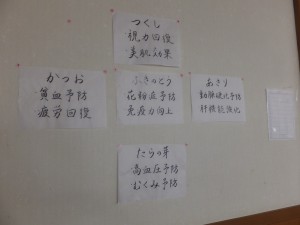 つくし
視力回復
美肌効果
かつお
貧血予防
疲労回復
ふきのとう
花粉症予防
免疫力向上
あさり
動脈硬化予防
肝機能強化
たらの芽
高血圧予防
むくみ予防